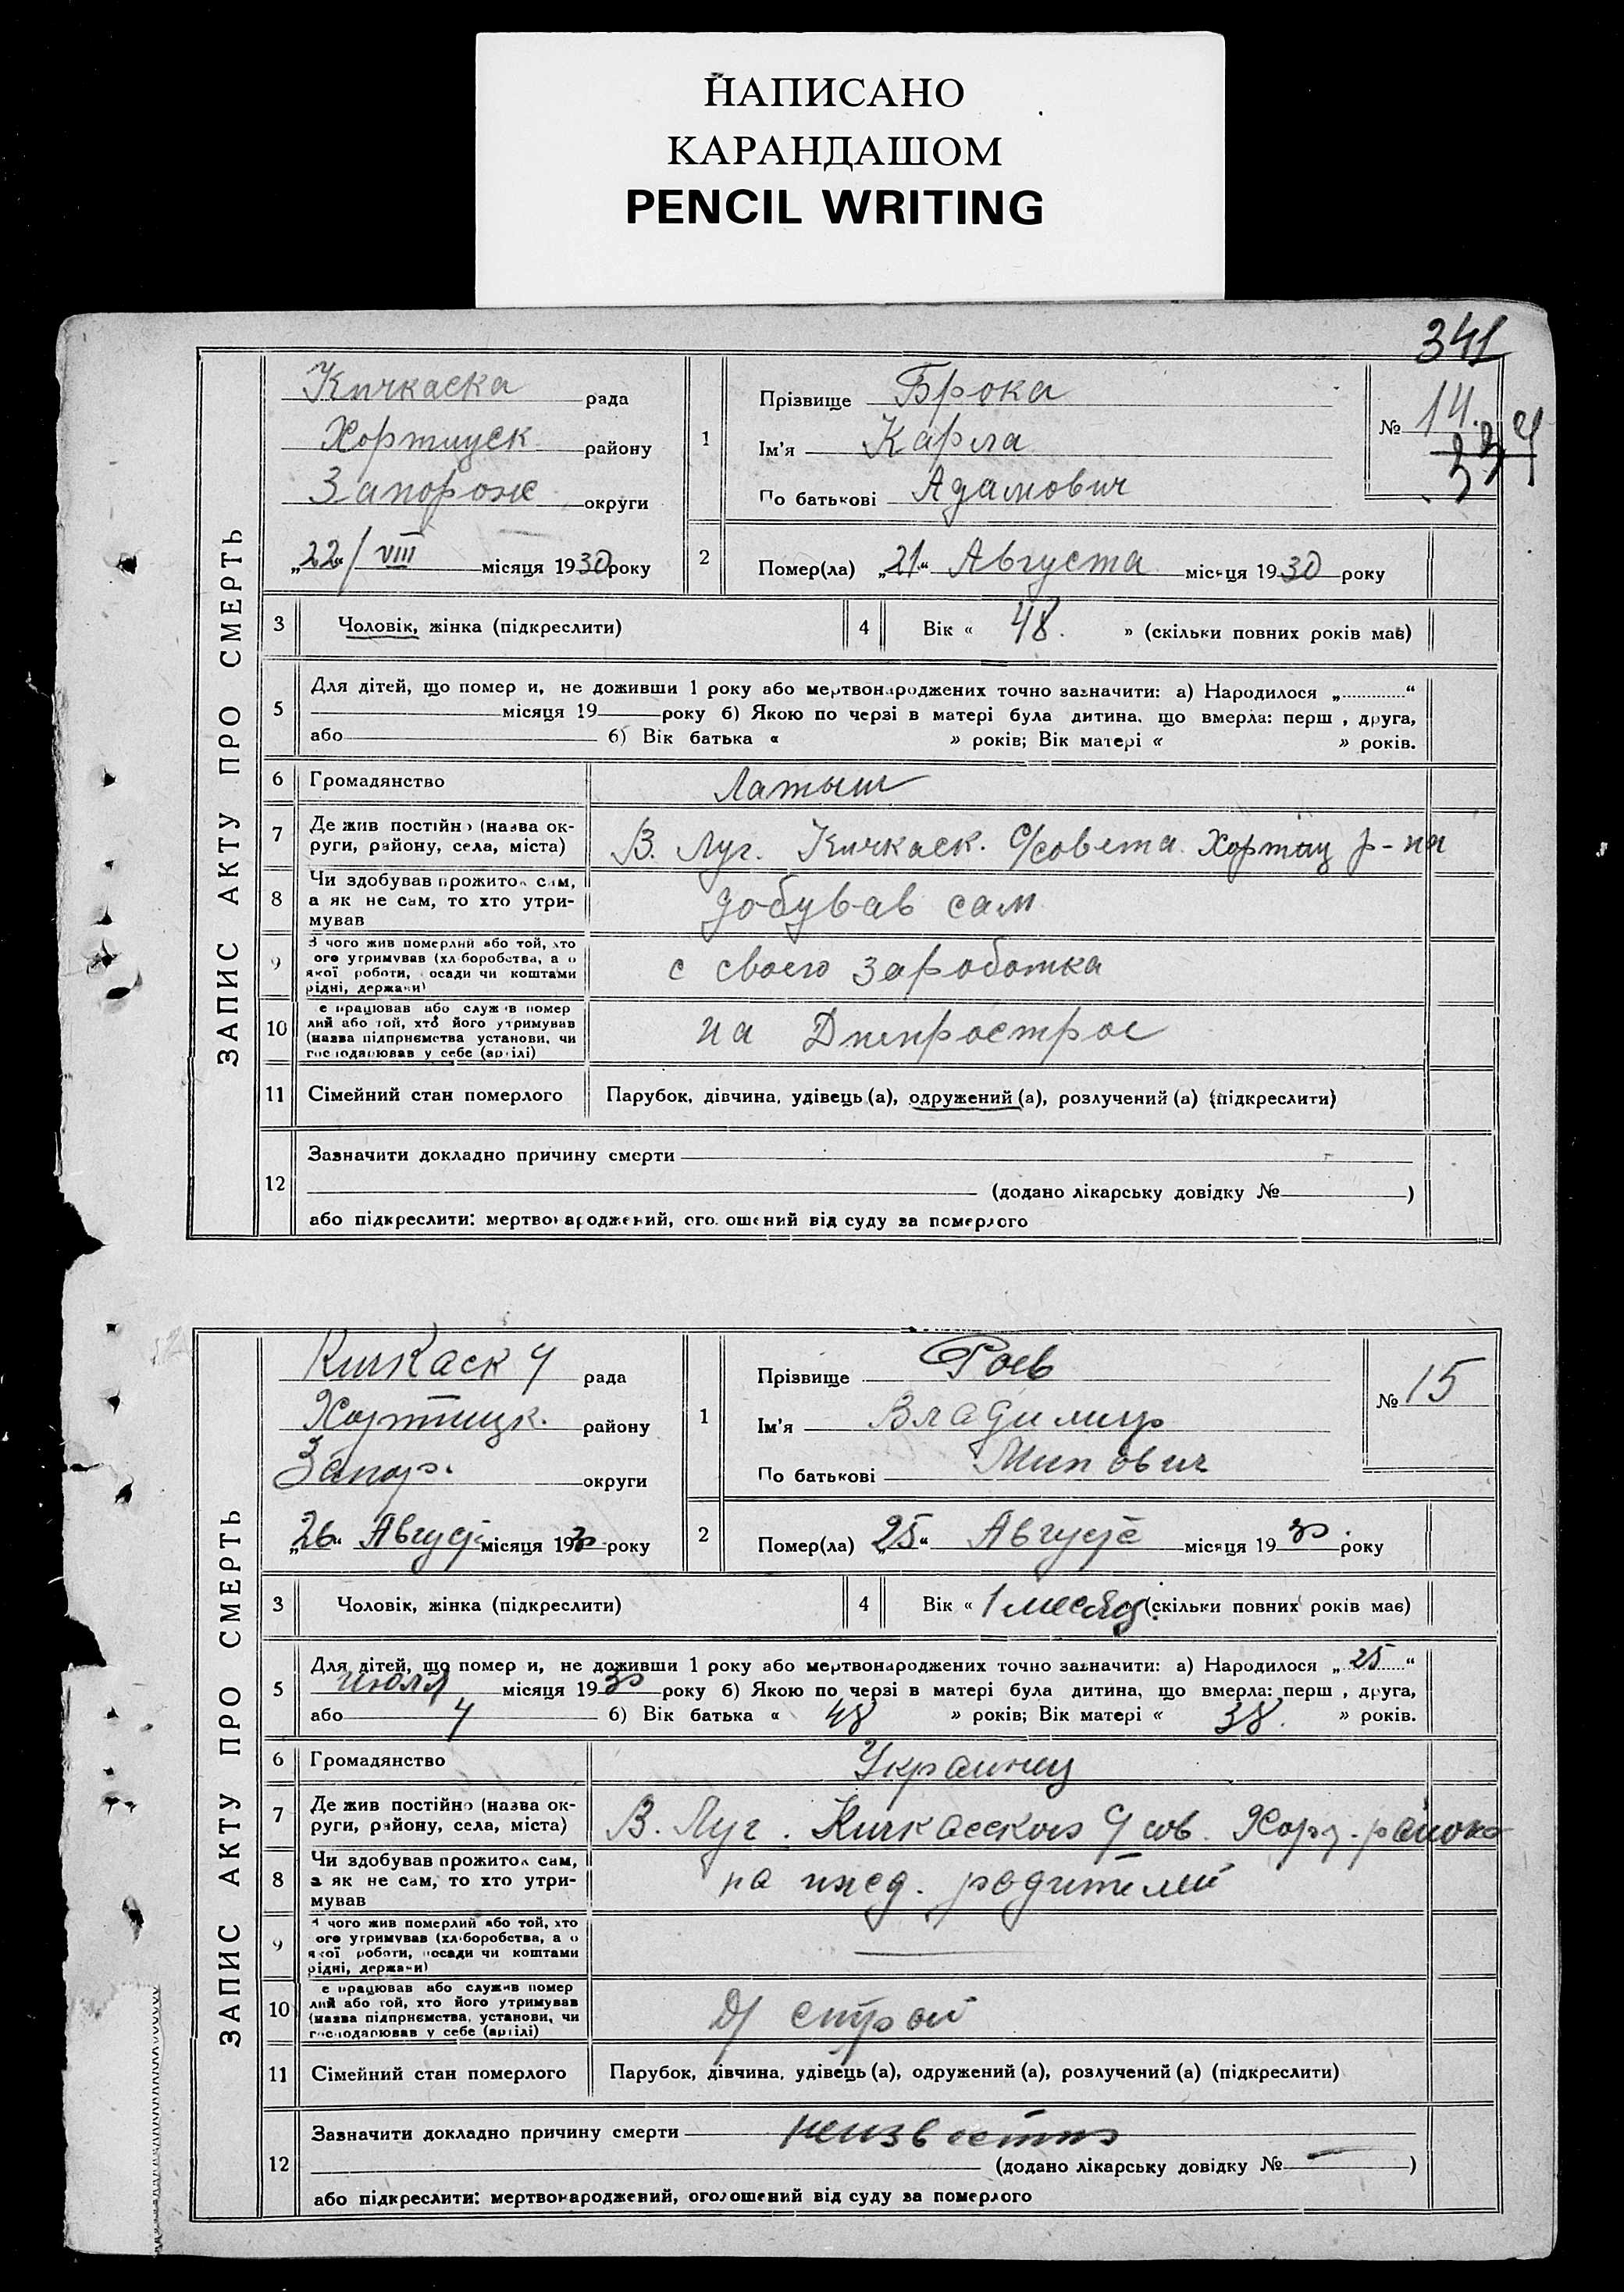 НАПИСАНО
КАРАНДАШОМ
PENCIL WRITING
341
ЗАПИС АКТУ ПРО СМЕРТЬ
Кичкаска рада
Хортицск району
Запорож округи
„22“/VIII місяця 1930 року
1
Прізвище Брока
Ім'я Карла
По батькові Адамович
№ 14.
334
2
Помер(ла) „21“ Августа місяця 1930 року
3 Чоловік, жінка (підкреслити)
4 Вік « 48. » (скільки повних років має)
5 Для дітей, що помер и, не доживши 1 року або мертвонароджених точно зазначити: а) Народилося „ “
місяця 19 року б) Якою по черзі в матері була дитина, що вмерла: перш , друга,
або б) Вік батька « » років; Вік матері « » років.
6 Громадянство Латыш
7 Де жив постійно (назва ок-
руги, району, села, міста) В. Луг. Кичкаск. С/совета Хортиц р-на
8 Чи здобував прожиток сам,
а як не сам, то хто утри-
мував добував сам
9 З чого жив померлий або той, хто
ого утримував (хліборобства, а о
якої роботи, осади чи коштами
рідні, держави) с своего заработка
10 е працював або служив помер
лий або той, хто його утримував
(назва підприємства установи, чи
господарював у себе (артілі) на Днепрострое
11 Сімейний стан померлого Парубок, дівчина, удівець (а), одружений (а), розлучений (а) (підкреслити)
12 Зазначити докладно причину смерти
(додано лікарську довідку № )
або підкреслити: мертвонароджений, оголошений від суду за померлого
ЗАПИС АКТУ ПРО СМЕРТЬ
Кичкаск рада
Хортицк. району
Запор. округи
„26“ Август місяця 1930 року
1
Прізвище Роев
Ім'я Владимир
По батькові
№ 15
2
Помер(ла) „25“ Августа місяця 1930 року
3 Чоловік, жінка (підкреслити)
4 Вік « 1 месяц. (скільки повних років має)
5 Для дітей, що помер и, не доживши 1 року або мертвонароджених точно зазначити: а) Народилося „25“
июля місяця 1930 року б) Якою по черзі в матері була дитина, що вмерла: перш , друга,
або 4 б) Вік батька « 48 » років; Вік матері « 38. » років.
6 Громадянство Украинец
7 Де жив постійно (назва ок-
руги, району, села, міста) В. Луг. Кичкасского С/сов. Хорт. района
8 Чи здобував прожиток сам,
а як не сам, то хто утри-
мував на ижд. родителей
9 З чого жив померлий або той, хто
ого утримував (хліборобства, а о
якої роботи, посади чи коштами
рідні, держави) —
10 е працював або служив помер
лий або той, хто його утримував
(назва підприємства, установи, чи
господарював у себе (артілі) Д/строй
11 Сімейний стан померлого Парубок, дівчина, удівець (а), одружений (а), розлучений (а) (підкреслити)
12 Зазначити докладно причину смерти неизвестно
(додано лікарську довідку № — )
або підкреслити: мертвонароджений, оголошений від суду за померлого